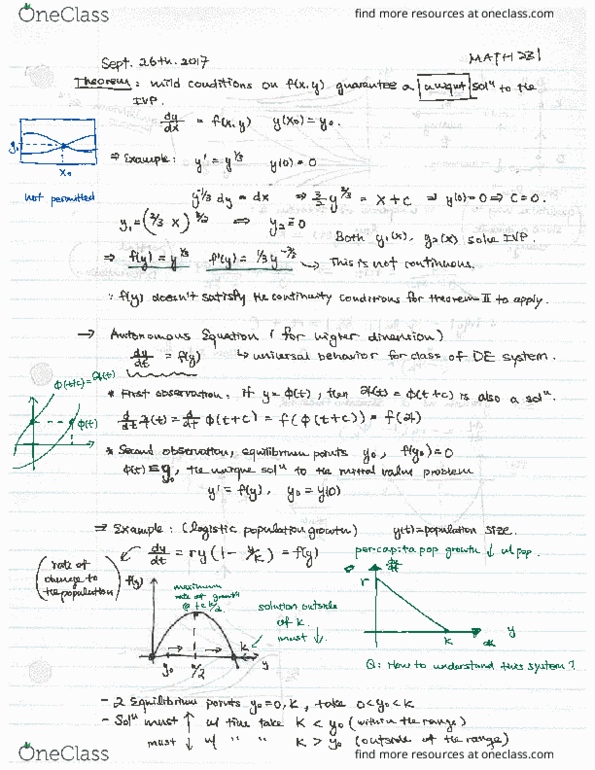 OneClass
find more resources at oneclass.com
Sept. 26th. 2017
MATH 231
Theorem: mild conditions on f(x,y) guarantee a unique solⁿ to the
IVP.
dy/dx = f(x,y) y(x₀) = y₀.
y₀
x₀
not permitted
⇒ Example: y' = y^1/3 y(0) = 0
y^-1/3 dy = dx ⇒ 3/2 y^2/3 = x + c ⇒ y(0) = 0 ⇒ C = 0.
y₁ = (2/3 x)^3/2 ⇔ y₂ ≡ 0
Both y₁(x), y₂(x) solve IVP.
⇒ f(y) = y^1/3 f'(y) = 1/3 y^-2/3 ↳ This is not continuous.
∴ f(y) doesn't satisfy the continuity conditions for theorem II to apply.
→ Autonomous Equation (for higher dimension)
dy/dt = f(y) ↳ universal behavior for class of DE system.
* First observation, if y = φ(t), then ỹ(t) = φ(t+c) is also a solⁿ.
φ(t+c) = ỹ(t)
φ(t)
d/dt ỹ(t) = d/dt φ(t+c) = f(φ(t+c)) = f(ỹ)
* Second observation, equilibrium points y₀, f(y₀) = 0
φ(t) ≡ y₀, the unique solⁿ to the initial value problem
y' = f(y), y₀ = y(0)
⇒ Example: (logistic population growth) y(t) = population size.
dy/dt = ry(1 - y/K) = f(y)
(rate of change to the population)
per capita pop growth ↓ w/ pop.
f(y)
maximum
rate of growth
solution outside
of K.
must ↓
y₀ K/2 K y
r
K y
Q: How to understand this system?
- 2 Equilibrium points y₀ = 0, K, take 0 < y₀ < K
- Solⁿ must ↑ w/ time take K < y₀ (within the range)
must ↓ w/ " " K > y₀ (outside of the range)
OneClass
find more resources at oneclass.com